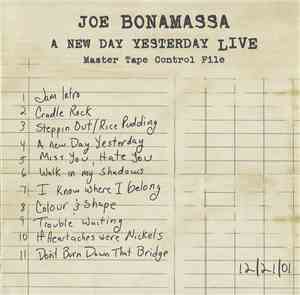 JOE BONAMASSA
A NEW DAY YESTERDAY LIVE
Master Tape Control File
1 Jam Intro
2 Cradle Rock
3 Steppin Out/Rice Pudding
4 A new Day Yesterday
5 Miss You, Hate You
6 Walk in my Shadows
7 I Know Where I belong
8 Colour & Shape
9 Trouble Waiting
10 If Heartaches were Nickels
11 Don't Burn Down That Bridge
12/21/01